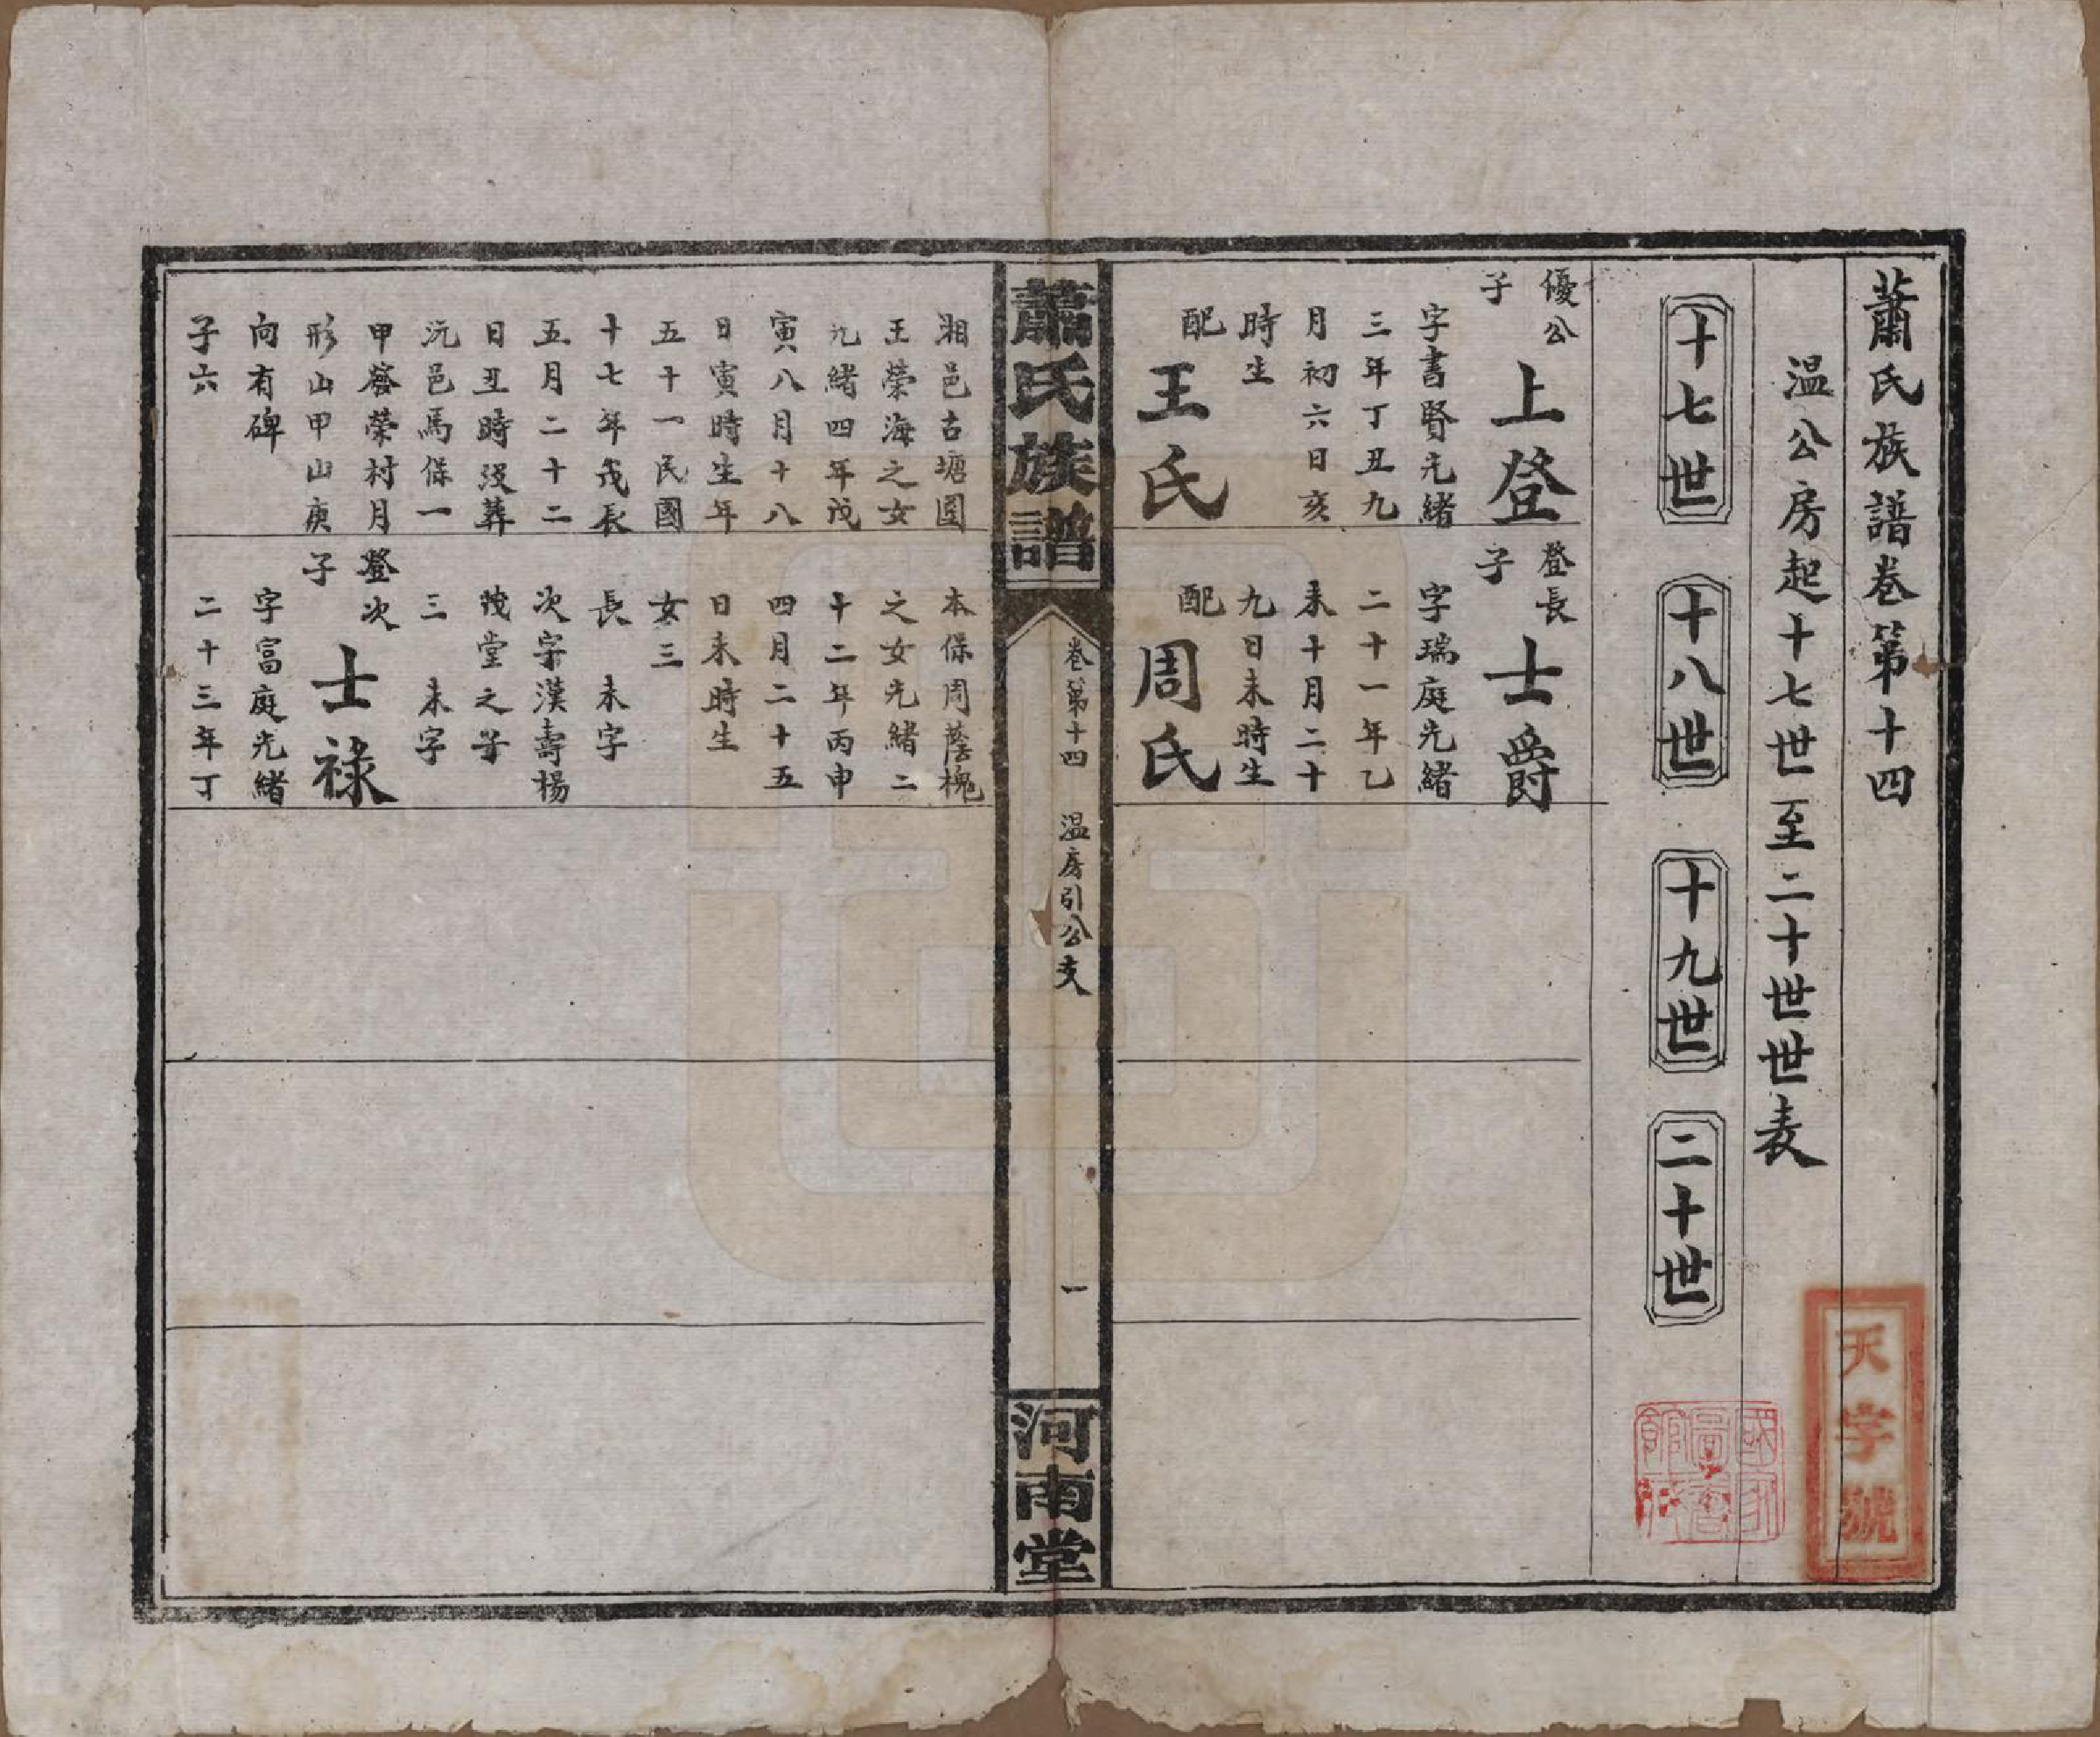 蕭氏族譜卷第十四
温公房起十七世至二十世世表
十七世
十八世
十九世
二十世
優公
子
上登
字書賢光緒
三年丁丑九
月初六日亥
時生
配
王氏
登長
子
士爵
字瑞庭光緒
二十一年乙
未十月二十
九日未時生
配
周氏
蕭氏族譜
卷第十四
温房引公支
一
河南堂
湘邑古塘圍
王榮海之女
光緒四年戊
寅八月十八
日寅時生年
五十一民國
十七年戊辰
五月二十二
日丑時沒葬
沅邑馬保一
甲 榮村月
形山甲山庚
向有碑
子六
本保周蔭槐
之女光緒二
十二年丙申
四月二十五
日未時生
女三
長 未字
次字漢壽楊
茂堂之子
三 未字
登次
子
士祿
字富庭光緒
二十三年丁
天字號
國家圖書館藏